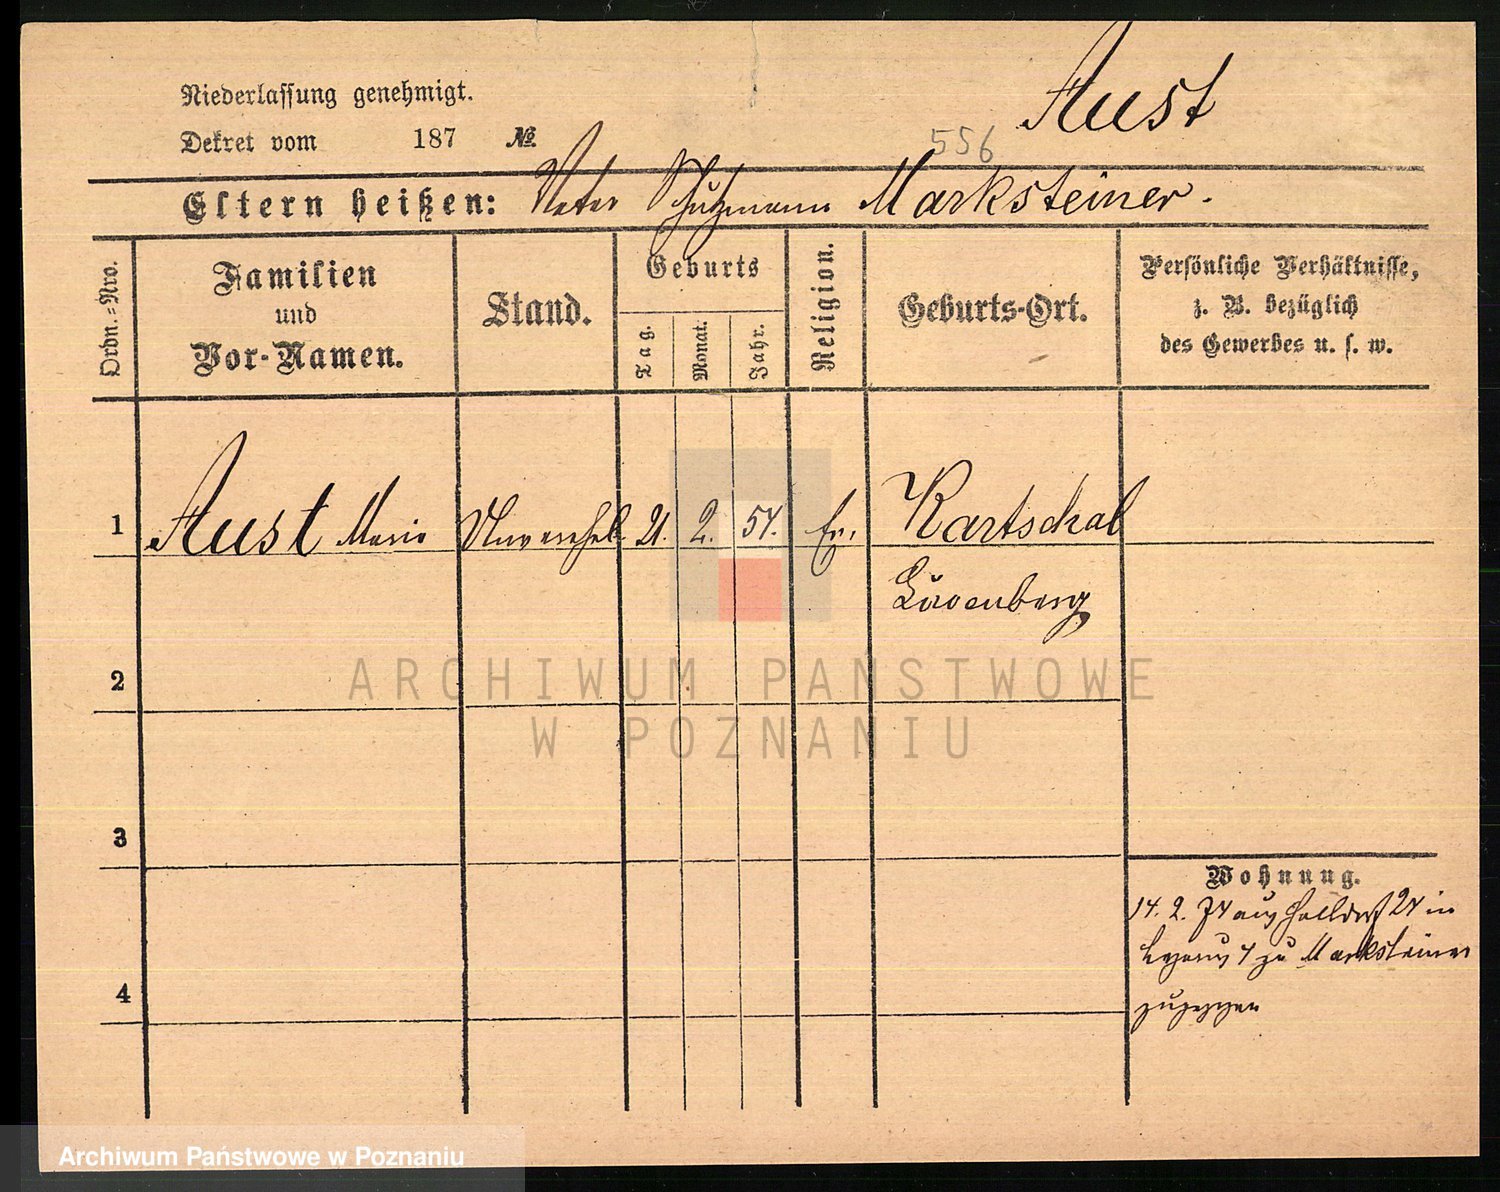 Aust
Niederlassung genehmigt.
Dekret vom 187 №.
556
Eltern heißen: Vater Schutzmann Marksteiner.
Ordn.-Nro.
Familien
und
Vor-Namen.
Stand.
Geburts
Tag.
Monat.
Jahr.
Religion.
Geburts-Ort.
Persönliche Verhältnisse,
z. B. bezüglich
des Gewerbes u. s. w.
1 Aust Marie Unverehel. 21. 2. 54. Ev. Kartschal
Löwenberg
2
3
4
Wohnung.
14. 2. 74 aus 24 in
4 zu Marksteiner
zugezogen
ARCHIWUM PAŃSTWOWE
W POZNANIU
Archiwum Państwowe w Poznaniu